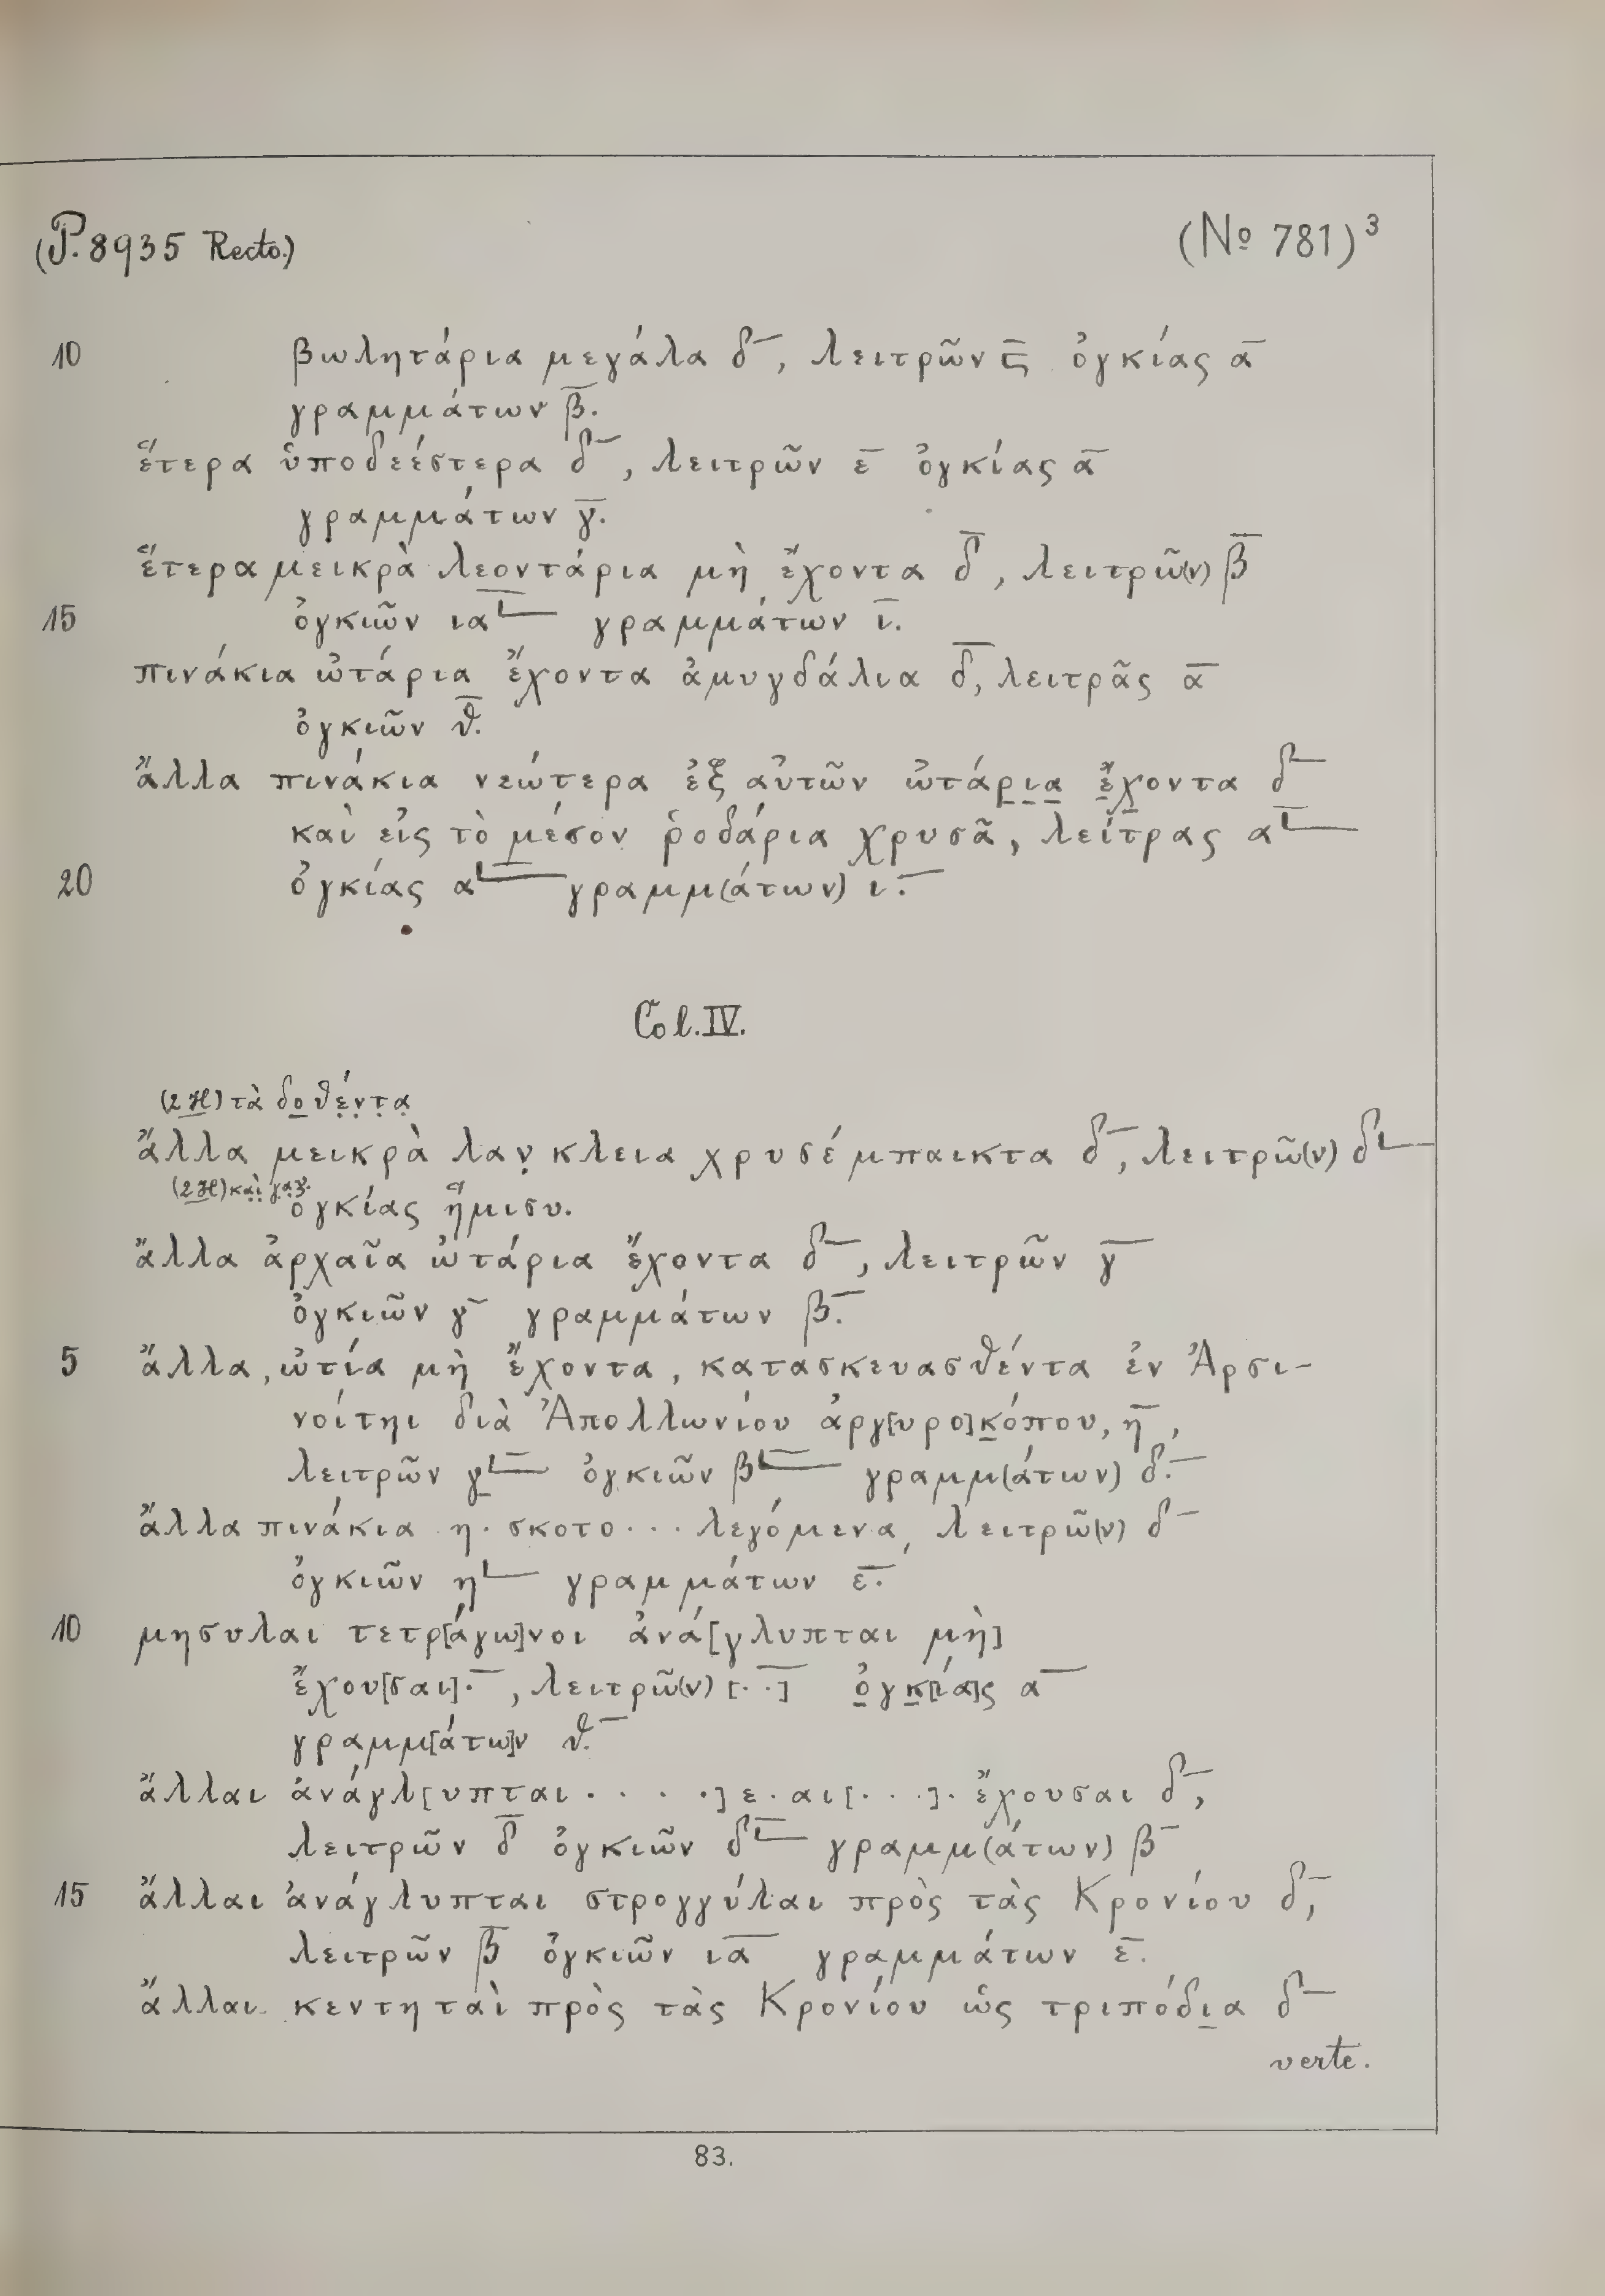 (P. 8935 Recto.) (No 781)³
10 βωλητάρια μεγάλα δ̅, λειτρῶν ϛ̅ ὀγκίας α̅
γραμμάτων β̅.
ἕτερα ὑποδεέστερα δ̅, λειτρῶν ε̅ ὀγκίας α̅
γραμμάτων γ̅.
ἕτερα μεικρὰ λεοντάρια μὴ ἔχοντα δ̅, λειτρῶ(ν) β̅
15 ὀγκιῶν ια̅𐅵 γραμμάτων ι̅.
πινάκια ὠτάρια ἔχοντα ἀμυγδάλια δ̅, λειτρᾶς α̅
ὀγκιῶν θ̅.
ἄλλα πινάκια νεώτερα ἐξ αὐτῶν ὠτάρ̣ι̣α̣ ἔ̣χ̣οντα δ̅
καὶ εἰς τὸ μέσον ῥοδάρια χρυσᾶ, λείτρας α𐅵̅
20 ὀγκίας α𐅵̅ γραμμ(άτων) ι̅.
Col. IV.
(2 H) τὰ δο̣θέ̣ν̣τ̣α̣
ἄλλα μεικρὰ λαν̣κλεια χρυσέμπαικτα δ̅, λειτρῶ(ν) δ𐅵
(2 H) κα̣ὶ̣ γ̣α̣ζ̣.
ὀγκίας ἥμισυ.
ἄλλα ἀρχαῖα ὠτάρια ἔχοντα δ̅, λειτρῶν γ̅
ὀγκιῶν γ̅ γραμμάτων β̅.
5 ἄλλα, ὠτία μὴ ἔχοντα, κατασκευασθέντα ἐν Ἀρσι-
νοίτηι διὰ Ἀπολλωνίου ἀργ[υρο]κ̣όπου, η̅,
λειτρῶν γ̣𐅵̅ ὀγκιῶν β𐅵̅ γραμμ(άτων) δ̅.
ἄλλα πινάκια η . σκοτο . . . λεγόμενα, λειτρῶ(ν) δ̅
ὀγκιῶν η𐅵 γραμμάτων ε̅.
10 μησυλαι τετρ[άγω]νοι ἀνά[γλυπται μὴ]
ἔχου[σαι] .̅, λειτρῶ(ν) [. .] ὀ̣γκ̣[ία]ς α̅
γραμμ[άτω]ν θ̅.
ἄλλαι ἀνάγλ[υπται . . . .] ε . αι[. . .] . ἔχουσαι δ̅,
λειτρῶν δ̅ ὀγκιῶν δ𐅵̅ γραμμ(άτων) β̅
15 ἄλλαι ἀνάγλυπται στρογγύλαι πρὸς τὰς Κρονίου δ̅,
λειτρῶν β̅ ὀγκιῶν ια̅ γραμμάτων ε̅.
ἄλλαι κεντηταὶ πρὸς τὰς Κρονίου ὡς τριπόδι̣α δ̅
verte.
83.